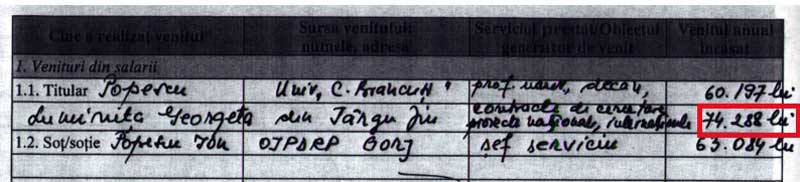 Cine a realizat venitul Sursa venitului: numele, adresa Serviciul prestat/Obiectul generator de venit Venitul anual încasat
1. Venituri din salarii
1.1. Titular Popescu Univ. C. Brâncuși prof. univ., decan, 60.197 lei
Luminița Georgeta din Târgu Jiu contracte de cercetare, proiecte naționale, internaționale 74.288 lei
1.2. Soț/soție Popescu Ion OJPDRP GORJ șef serviciu 63.084 lei